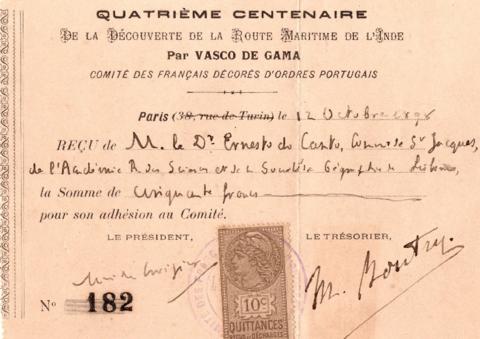 QUATRIÈME CENTENAIRE
DE LA DÉCOUVERTE DE LA ROUTE MARITIME DE L'INDE
Par VASCO DE GAMA
COMITÉ DES FRANÇAIS DÉCORÉS D'ORDRES PORTUGAIS
Paris (38, rue de Turin) le 12 Octobre
REÇU de M. le Dr Ernesto do Canto, Comm de St Jacques,
de l'Académie R. des Sciences et de la Société de Géographie de Lisbonne,
la Somme de Cinquante francs
pour son adhésion au Comité.
LE PRÉSIDENT, LE TRÉSORIER,
10c
Nº 182
QUITTANCES